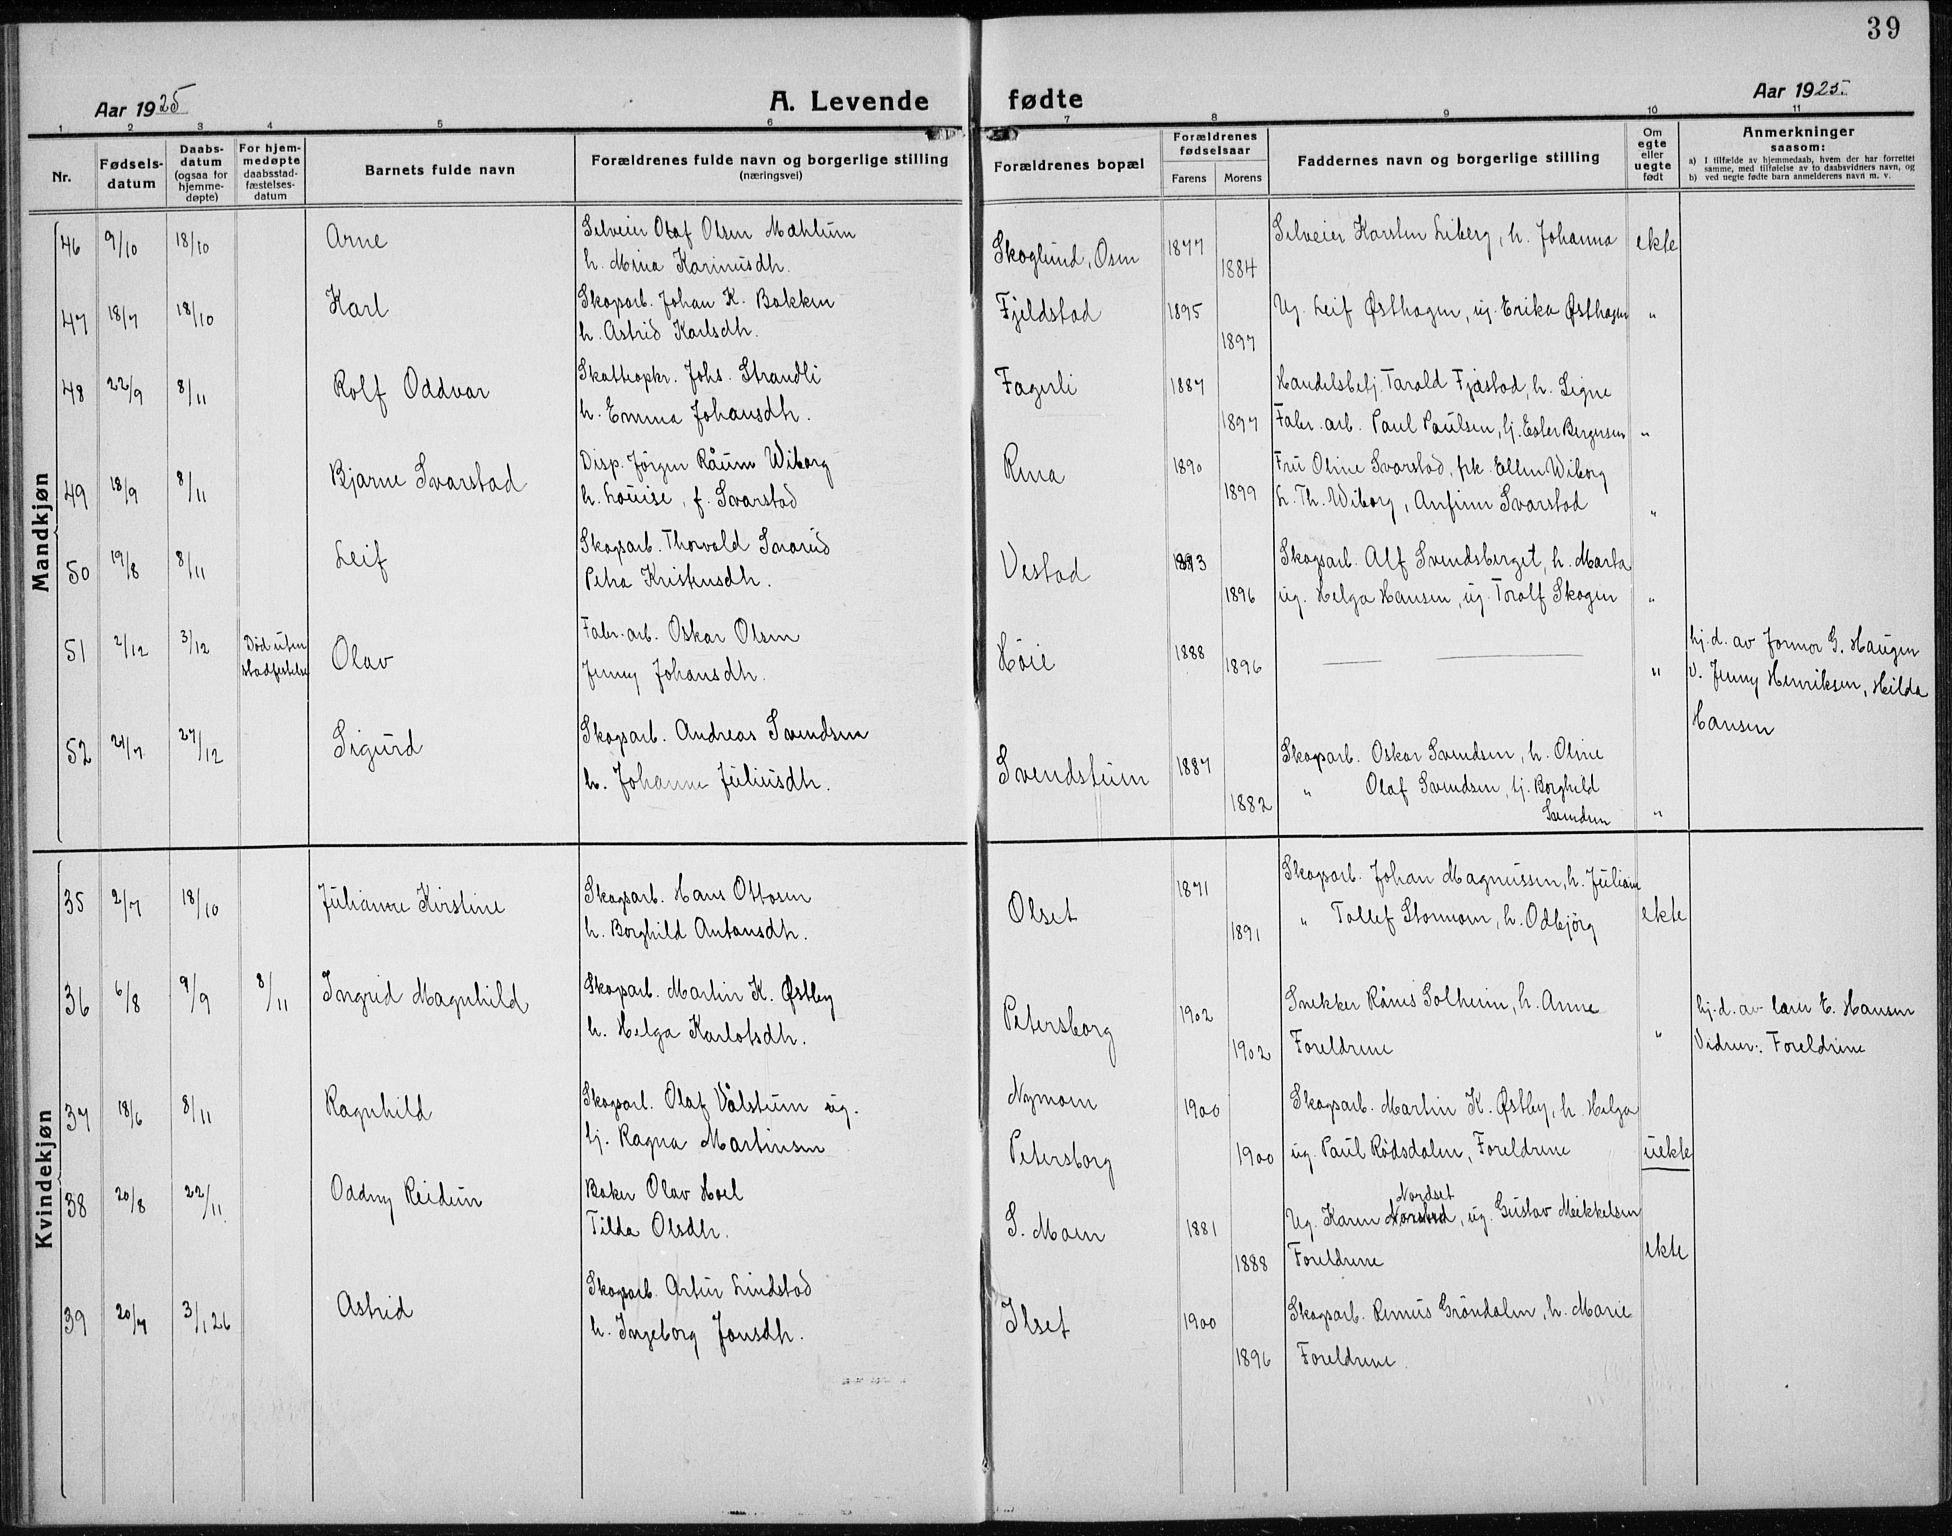 39
Aar 1925
A. Levende fødte
Aar 1925.
1 2 3 4 5 6 7 8 9 10 11
Nr.
Fødsels-
datum
Daabs-
datum
(ogsaa for
hjemme-
døpte)
For hjem-
medøpte
daabsstad-
fæstelses-
datum
Barnets fulde navn
Forældrenes fulde navn og borgerlige stilling
(næringsvei)
Forældrenes bopæl
Forældrenes
fødselsaar
Farens Morens
Faddernes navn og borgerlige stilling
Om
egte
eller
uegte
født
Anmerkninger
saasom:
a) I tilfælde av hjemmedaab, hvem der har forrettet
samme, med tilføielse av to daabsvidners navn, og
b) ved uegte fødte barn anmelderens navn m. v.
Mandkjøn
46 9/10 18/10 Arne Selveier Olaf Olsen Mæhlum
h. Mina Karinusdh.
Skoglund, Osen 1877
1884
Selveier Karsten Liberg, h. Johanna ekte
47 18/7 18/10 Karl Skogsarb. Johan K. Bakken
h. Astrid Karlsdh.
Fjeldstad 1895
1897
Ug. Leif Østhagen, ug. Erika Østhagen "
48 22/9 8/11 Rolf Oddvar Skatteopkr. Johs. Strandli
h. Emma Johansdh.
Fagerli 1887
1897
Handelsbetj. Tarald Fjæstad, h. Signe
Fabr. arb. Paul Paulsen, tj. Ester Bergersen "
49 18/9 8/11 Bjarne Svarstad Disp. Jörgen Råum Wiborg
h. Louise, f. Svarstad
Rena 1890
1899
Fru Oline Svarstad, frk. Ellen Wiborg
h. Th. Wiborg, Anfinn Svarstad "
50 19/8 8/11 Leif Skogsarb. Thorvald Snarud
Petra Kristensdh.
Vestad 1893
1896
Skogsarb. Alf Svendsberget, h. Marta
ug. Helga Hansen, ug. Toralf Skogen "
51 2/12 3/12 Död uten
stadfestelse
Olav Fabr. arb. Oskar Olsen
Jenny Johansdh.
Höie 1888
1896
— —
"
hj.d. av formor G. Haugen
V. Jenny Henriksen, Hilda
Hansen
52 21/7 27/12 Sigurd Skogsarb. Andreas Svendsen
h. Johanne Juliusdh.
Svendstuen 1887
1882
Skogsarb. Oskar Svendsen, h. Oline
" Olaf Svendsen, tj. Borghild
Svendsen "
Kvindekjøn
35 2/7 18/10 Julianne Kirstine Skogsarb. Hans Ottosen
h. Borghild Antonsdh.
Olset 1871
1891
Skogsarb. Johan Magnussen, h. Juliane
" Tollef Stormoen, h. Odbjörg ekte
36 6/8 9/9 8/11 Ingrid Magnhild Skogsarb. Martin K. Østby
h. Helga Karlotsdh.
Petersborg 1902
1902
Snekker Rånus Solheim, h. Anne
Foreldrene "
hj.d. av lærer E. Hansen
Vidner: Foreldrene
37 18/6 8/11 Ragnhild Skogsarb. Olaf Vålstuen ug.
tj. Ragna Martinsen
Nymoen
Petersborg
1900
1900
Skogsarb. Martin K. Østby, h. Helga
ug. Paul Rödsdalen, Foreldrene uekte
38 20/8 22/11 Oddny Reidun Baker Olav Hoel
Tilda Olsdh.
S. Moen 1881
1888
Ug. Karen Nordset, ug. Gustav Mikkelsen
Foreldrene ekte
39 20/7 3/1 26 Astrid Skogsarb. Artur Lindstad
h. Ingeborg Jonsdh.
Ilset 1900
1896
Skogsarb. Remus Gröndalen, h. Marie
Foreldrene.